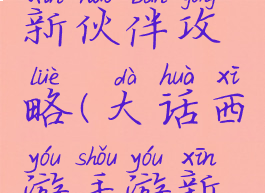 新伙伴攻
lüè dà huà xī
略(大话西
yóu shǒu yóu xīn
游手游新